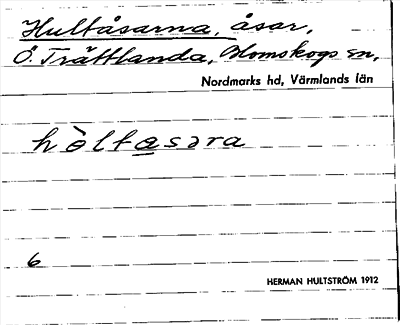 Hultåsarna, åsar,
Ö. Trättlanda, Blomskogs sn,
Nordmarks hd, Värmlands län
hòltasəra
6
HERMAN HULTSTRÖM 1912